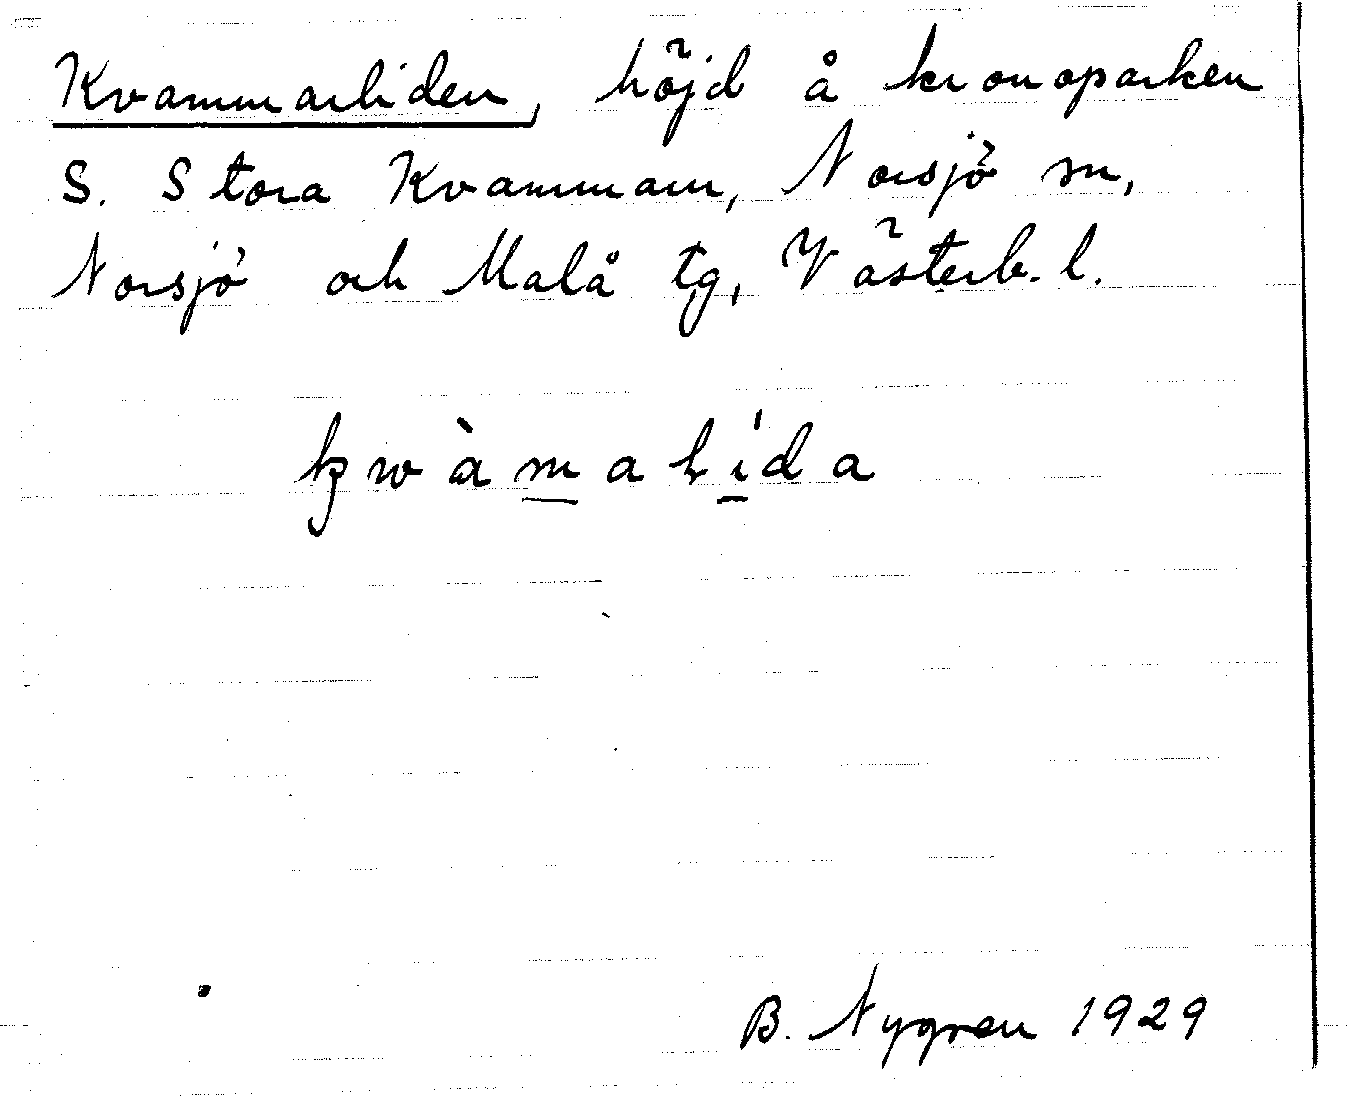 Kvammarliden, höjd å kronoparken
S. Stora Kvammarn, Norsjö sn,
Norsjö och Malå tg, Västerb. l.
kwàmalída
B. Nygren 1929